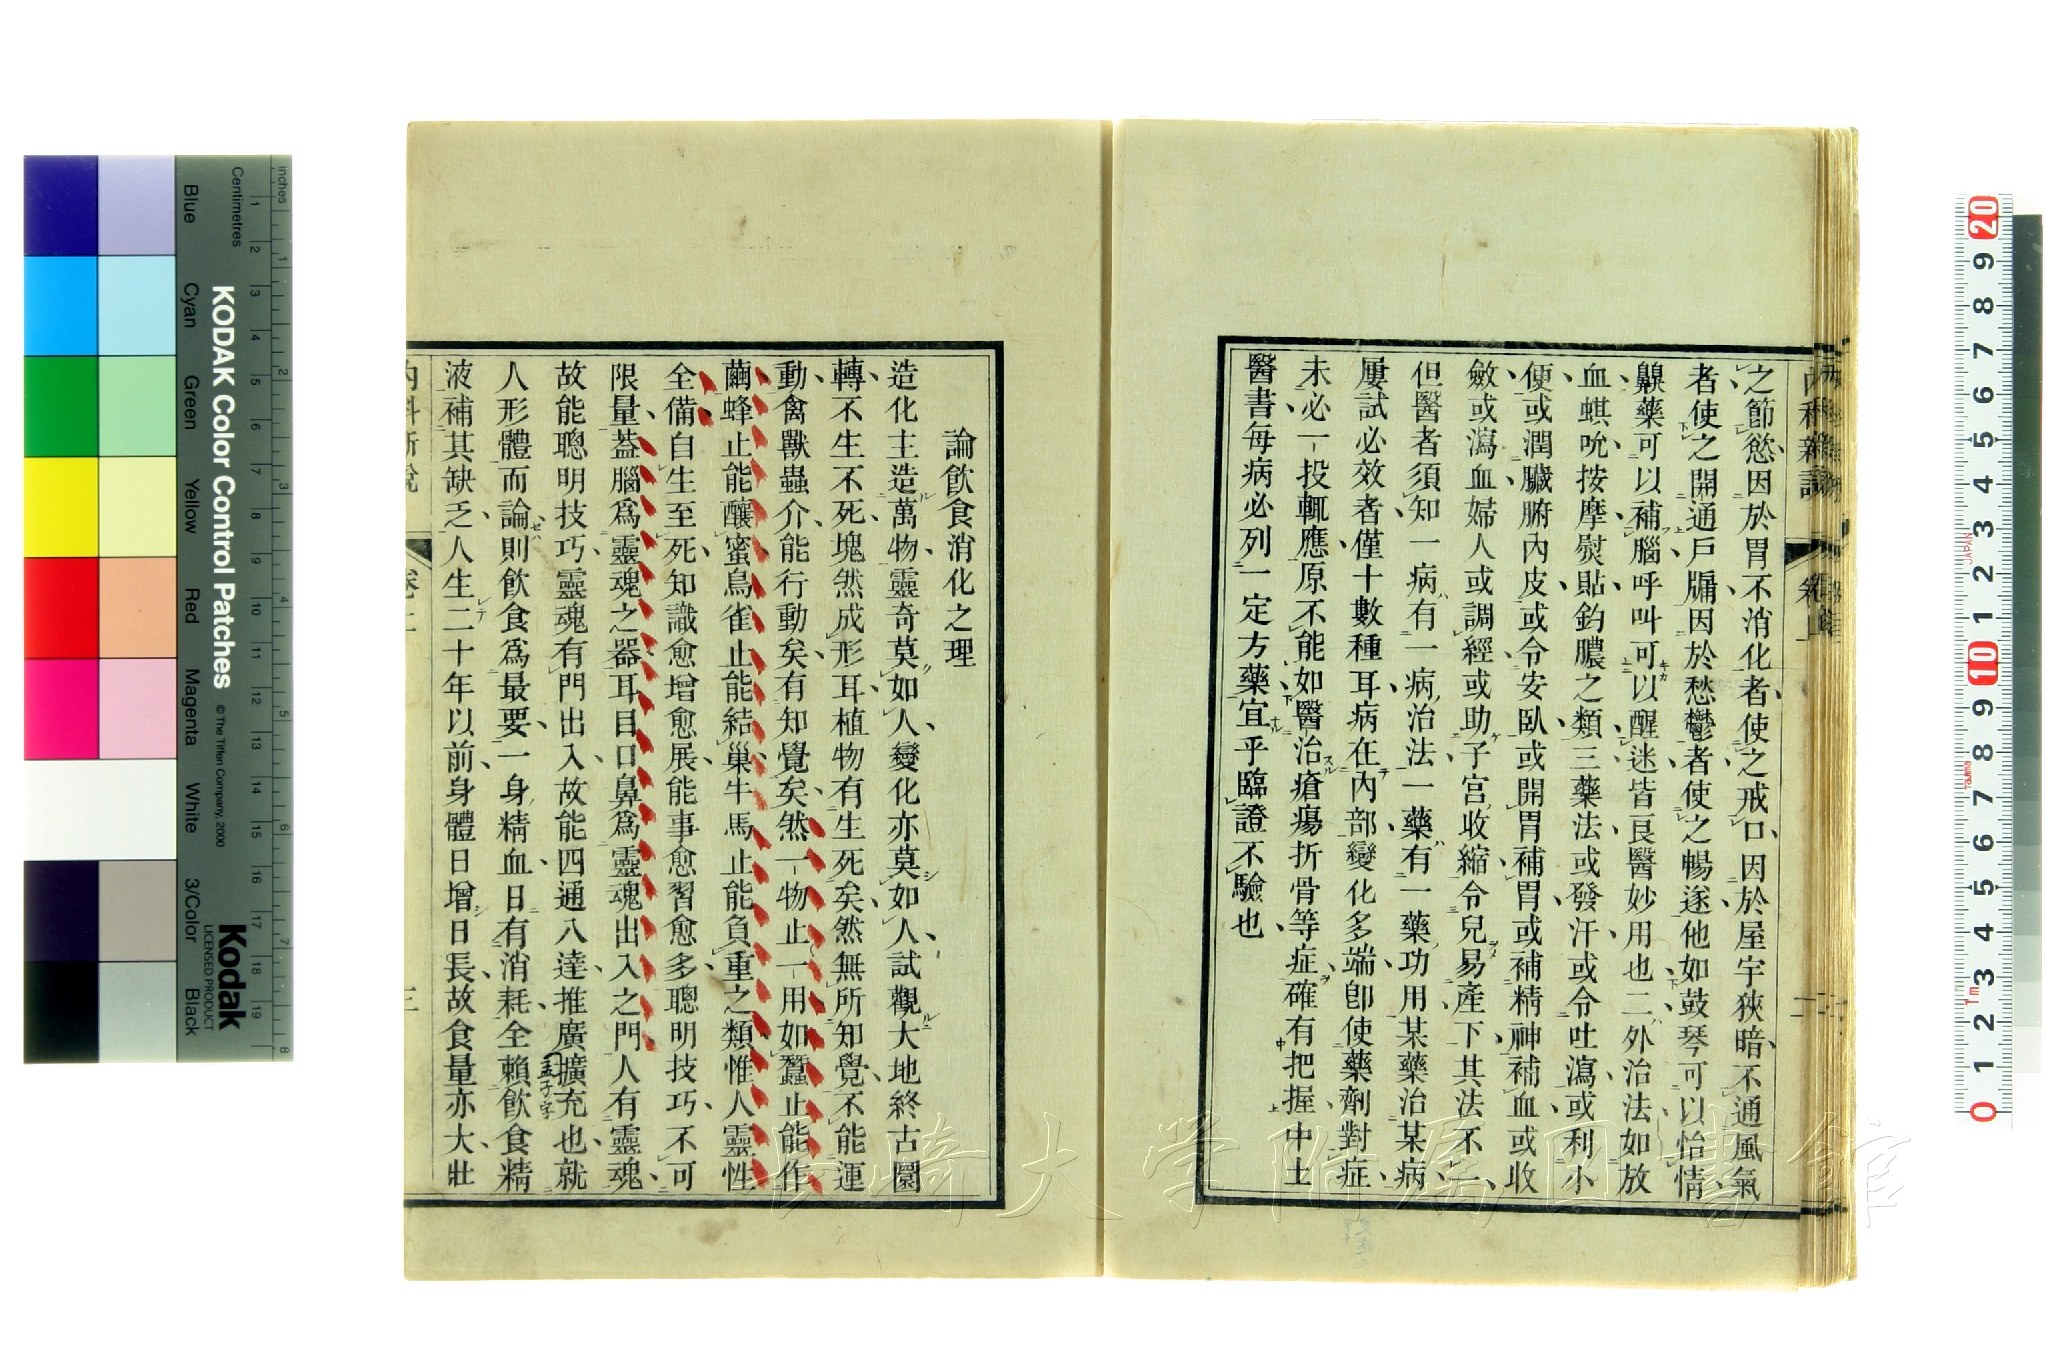 之節慾因於胃不消化者使之戒口因於屋宇狹暗不通風氣
者使之開通戶牖因於愁鬱者使之暢遂他如鼓琴可以怡情
齅藥可以補腦呼叫可以醒迷皆良醫妙用也二外治法如放
血蜞吮按摩熨貼鈞膿之類三藥法或發汗或令吐瀉或利小
便或潤臟腑內皮或令安臥或開胃補胃或補精神補血或收
斂或瀉血婦人或調經或助子宮收縮令兒易產下其法不一
但醫者須知一病有一病治法一藥有一藥功用某藥治某病
屢試必效者僅十數種耳病在內部變化多端卽使藥劑對症
未必一投輒應原不能如醫治瘡瘍折骨等症確有把握中土
醫書每病必列一定方藥宜乎臨證不驗也
論飲食消化之理
造化主造萬物靈奇莫如人變化亦莫如人試觀大地終古圜
轉不生不死塊然成形耳植物有生死矣然無所知覺不能運
動禽獸蟲介能行動矣有知覺矣然一物止一用如蠶止能作
繭蜂止能釀蜜鳥雀止能結巢牛馬止能負重之類惟人靈性
全備自生至死知識愈增愈展能事愈習愈多聰明技巧不可
限量葢腦爲靈魂之器耳目口鼻爲靈魂出入之門人有靈魂
故能聰明技巧靈魂有門出入故能四通八達推廣擴充也就
孟子字
人形體而論則飲食爲最要一身精血日有消耗全賴飲食精
液補其缺乏人生二十年以前身體日增日長故食量亦大壯
內科新說
卷上
三
KODAK Color Control Patches
© The Tiffen Company, 2000
Kodak
LICENSED PRODUCT
inches
Centimetres
Blue
Cyan
Green
Yellow
Red
Magenta
White
3/Color
Black
長崎大学附属図書館
JAPAN
Tajima
1m